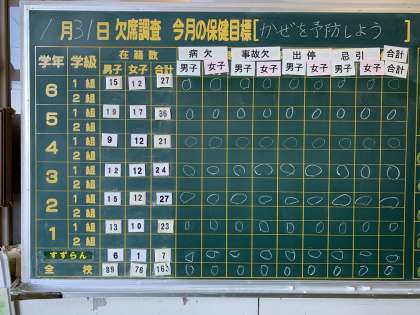 1月31日 欠席調査 今月の保健目標[かぜを予防しよう]
学年 学級 在籍数 病欠 事故欠 出停 忌引 合計
男子 女子 合計 男子 女子 男子 女子 男子 女子 男子 女子 合計
6 1組 15 12 27 0 0 0 0 0 0 0 0 0
2組
5 1組 19 17 36 0 0 0 0 0 0 0 0 0
2組
4 1組 9 12 21 0 0 0 0 0 0 0 0 0
2組
3 1組 12 12 24 0 0 0 0 0 0 0 0 0
2組
2 1組 15 12 27 0 0 0 0 0 0 0 0 0
2組
1 1組 13 10 23 0 0 0 0 0 0 0 0 0
2組
すずらん 6 1 7 0 0 0 0 0 0 0 0 0
全校 89 76 0 0 0 0 0 0 0 0 0